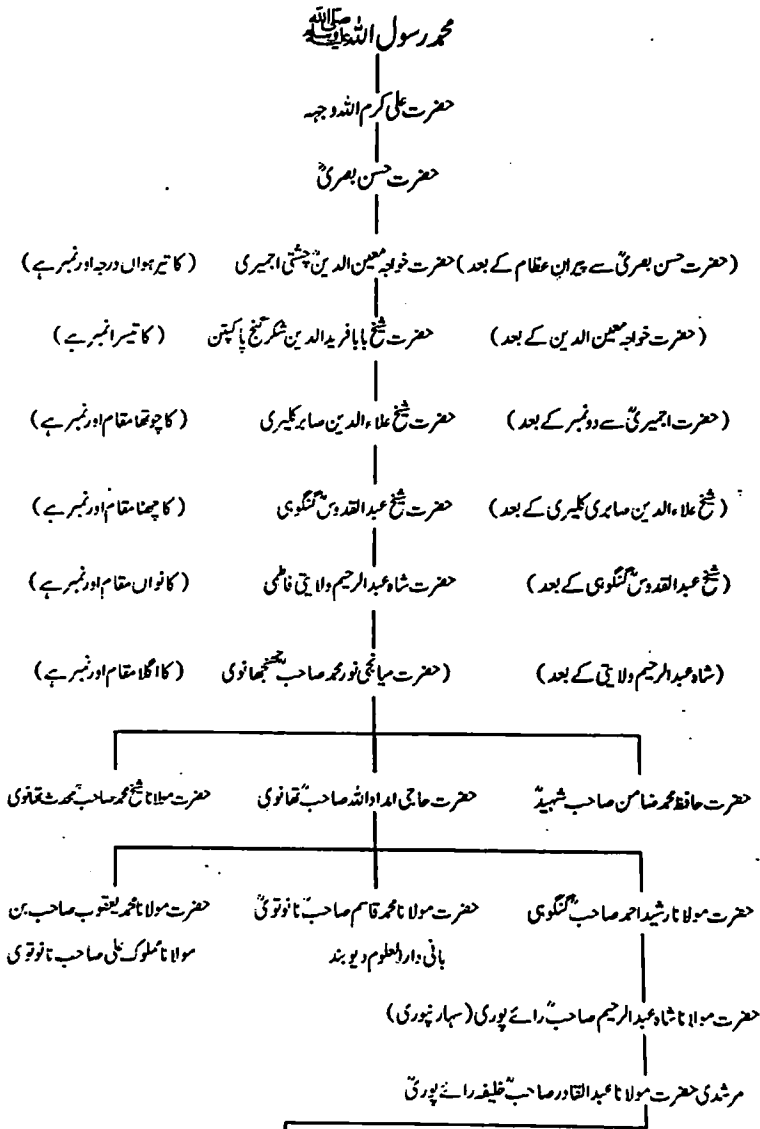 محمد رسول اللہ ﷺ
حضرت علی کرم اللہ وجہہ
حضرت حسن بصریؒ
(حضرت حسن بصریؒ سے پیرانِ عظام کے بعد) حضرت خواجہ معین الدینؒ چشتی اجمیری (کا تیرھواں درجہ اور نمبر ہے)
(حضرت خواجہ معین الدین کے بعد) حضرت شیخ بابا فرید الدین شکر گنج پاکپتن (کا تیسرا نمبر ہے)
(حضرت اجمیریؒ سے دو نمبر کے بعد) حضرت شیخ علاء الدین صابر کلیری (کا چوتھا مقام اور نمبر ہے)
(شیخ علاء الدین صابری کلیری کے بعد) حضرت شیخ عبدالقدوسؒ گنگوہی (کا چھٹا مقام اور نمبر ہے)
(شیخ عبدالقدوسؒ گنگوہی کے بعد) حضرت شاہ عبدالرحیم ولایتی فاطمی (کا نواں مقام اور نمبر ہے)
(شاہ عبدالرحیم ولایتی کے بعد) (حضرت میانجی نور محمد صاحبؒ جھنجھانوی (کا اگلا مقام اور نمبر ہے)
حضرت حافظ محمد ضامن صاحب شہیدؒ حضرت حاجی امداد اللہ صاحبؒ تھانوی حضرت مولانا شیخ محمد صاحبؒ محدث تھانوی
حضرت مولانا رشید احمد صاحبؒ گنگوہی حضرت مولانا محمد قاسم صاحبؒ نانوتویؒ حضرت مولانا محمد یعقوب صاحب بن
بانی دارالعلوم دیوبند مولانا مملوک علی صاحب نانوتوی
حضرت مولانا شاہ عبدالرحیم صاحبؒ رائے پوری (سہارنپوری)
مرشدی حضرت مولانا عبدالقادر صاحبؒ خلیفہ رائے پوریؒ